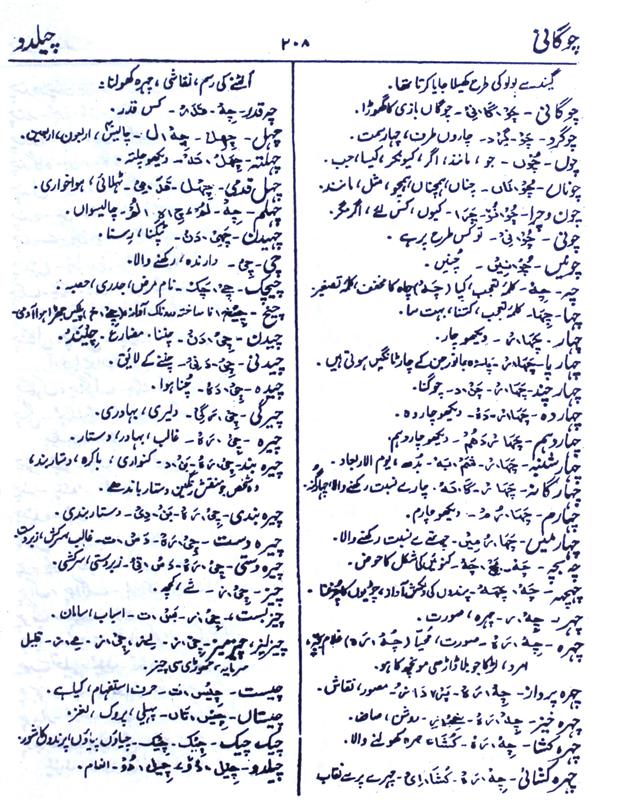 چوگانی
۲۰۸
چیلدو
گیند سے پولو کی طرح کھیلا جایا کرتا تھا۔
چوگانی - چَوْ، گَا، نِیْ - چوگان بازی کا گھوڑا۔
چوگرد - چَوْ، گِرْد - چاروں طرف، چہار سمت۔
چوں - چُوْں - جو، مانند، اگر، کیونکر، کیا، جب۔
چوناں - چُوْ، نَاں - چناں، ہمچناں، ہمچو، مثل، مانند۔
چون وچرا - چُوْ، نُوْ، چَرَا - کیوں، کس لئے، اگر مگر۔
چونی - چُوْ، نِیْ - تو کس طرح پر ہے۔
چونیں - چُوْ، نِیْں - چُنِیں۔
چہ - چِهْ - کلمۂ تعجب، کیا (چَهْ) چاہ کا مخفف، کلمۂ تصغیر۔
چہا - چِہَا - کلمۂ تعجب، کتنا، بہت سا۔
چہار - چَہَا، رْ - دیکھو چار۔
چہارپا - چَہَا، رْ، پَا - جانور جن کے چار ٹانگیں ہوتی ہیں۔
چہارچند - چَہَا، رْ، چَنْ، د - چوگنا۔
چہاردہ - چَہَا، رْ، دَهْ - دیکھو چاردہ۔
چہاردہم - چَہَا، رْ، دَهُمْ - دیکھو چاردہم۔
چہارشنبہ - چَہَا، رْ، شَمْ، بَهْ - بُدھ، یوم الاربعاء۔
چہارگانہ - چَہَا، رْ، گَا، نَهْ - چار سے نسبت رکھنے والا، چہارگز۔
چہارم - چَہَا، رُمْ - دیکھو چارم۔
چہارمیں - چَہَا، رْ، مِیْں - چوتھے سے نسبت رکھنے والا۔
چہبچہ - چَهْ، بَ، چَهْ - کنوئیں کی شکل کا حوض۔
چہچہہ - چَهْ، چَہَهْ - پرندوں کی دلکش آواز، چڑیوں کا
چہر - چِهْ، رْ - چہرہ، صورت۔
چہرہ - چِهْ، رَهْ - صورت، مُحیّا (چُهْ، رَهْ) غلام
امرد، لڑکا جو بلا ڈاڑھی مونچھ کا ہو۔
چہرہ پرداز - چِهْ، رَهْ - پَرْ، دَا، زْ - مصور، نقاش۔
چہرہ خیز - چِهْ، رَهْ - خِیْ، زْ - روشن، صاف۔
چہرہ کشا - چِهْ، رَهْ - کُشَا - چہرہ کھولنے والا۔
چہرہ کشائی - چِهْ، رَهْ - کُشَا، ئِیْ - چہرے پر سے نقاب
اُلٹنے کی رسم، نقاشی، چہرہ کھولنا۔
چہ قدر - چِهْ - قَدَرْ - کس قدر۔
چہل - چِہِلْ - چِهْ، لْ - چالیس، اربعون، اربعین۔
چہلتہ - چِہَلْ، تَهْ - دیکھو چلتہ۔
چہل قدمی - چِہَلْ - قَدَ، مِیْ - ٹہلائی، ہوا خوری۔
چہلم - چِهْ، لُمْ - چالیسواں۔
چہیدن - چَہِیْ، دَنْ - ٹپکنا، رِسنا۔
چی - چِیْ - دارندہ، رکھنے والا۔
چیچک - چِیْ، چَکْ - نام مرض، جدری، حصبہ۔
چیدن - چِیْ، دَنْ - چننا۔ مضارع - چِیْنَدْ۔
چیدنی - چِیْ، دَ، نِیْ - چننے کے لائق۔
چیدہ - چِیْ، دَهْ - چُنا ہوا۔
چیرگی - چِیْ، رَ، گِیْ - دلیری، بہادری۔
چیرہ - چِیْ، رَهْ - غالب، بہادر، دستار۔
چیرہ بند - چِیْ، رَهْ، بَنْ، د - کنواری، باکرہ، دستاربند،
وہ شخص جو منقش رنگین دستار باندھے۔
چیرہ بندی - چِیْ، رَهْ - بَنْ، دِیْ - دستار بندی۔
چیرہ دست - چِیْ، رَهْ - دَسْ، ت - غالب، سرکش، زبردست۔
چیرہ دستی - چِیْ، رَهْ - دَسْ، تِیْ - زبردستی، سرکشی۔
چیز - چِیْ، زْ - شے، کچھ۔
چیزبست - چِیْ، زْ - بَسْ، ت - اسباب، سامان۔
چیزلیز، چیزمیز - چِیْ، زْ - لِیْ، زْ، چِیْ، زْ - مِیْ، زْ - قلیل
سرمایہ، تھوڑی سی چیز۔
چیست - چِیْسْ، ت - حرف استفہام، کیا ہے۔
چیستاں - چِیْسْ، تَاں - پہیلی، پروک، الغز۔
چیک چیک - چِیْک - چِیْک - چیاؤں پیاؤں، پرندہ کا شور۔
چیلدو - چِیْل، دُوْ، چِیْل، دَوْ - انعام۔